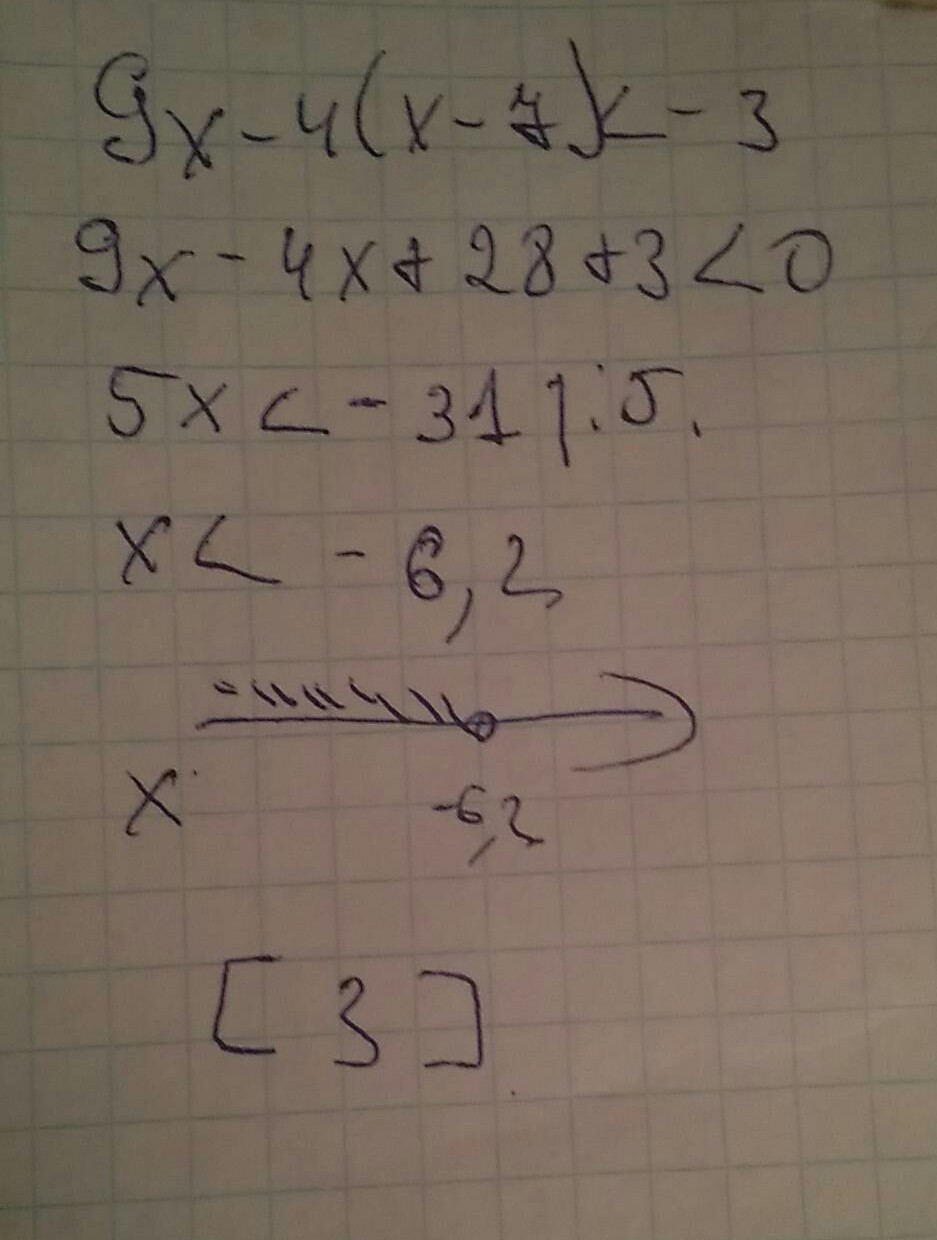 9x - 4(x - 7) < - 3
9x - 4x + 28 + 3 < 0
5x < - 31 | : 5.
x < - 6,2
x -6,2
[ 3 ]